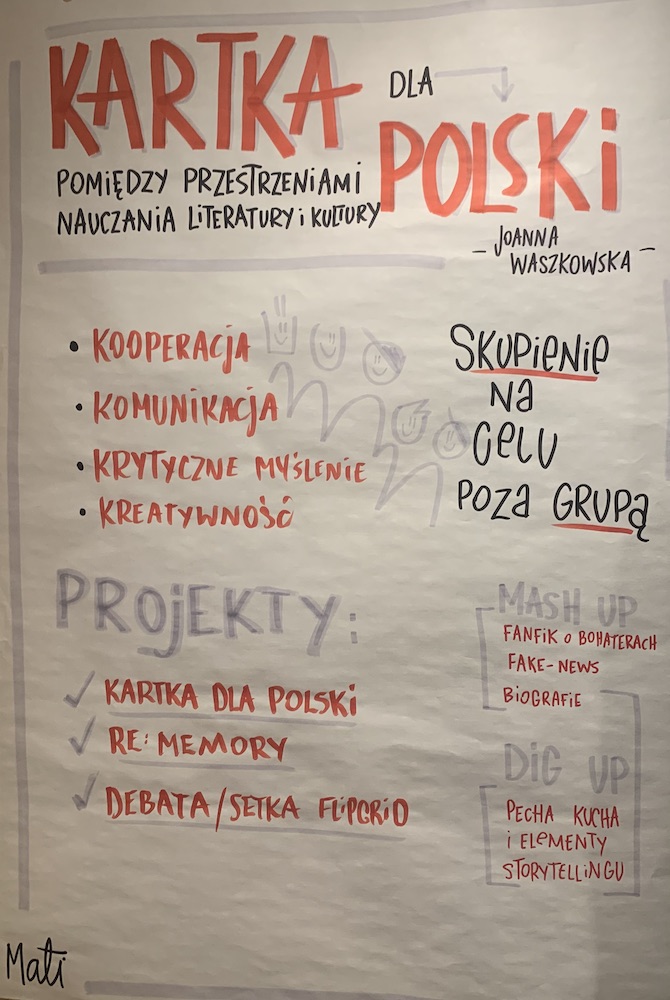 KARTKA DLA
POLSKI
POMIĘDZY PRZESTRZENIAMI
NAUCZANIA LITERATURY i KULTURY
- JOANNA
WASZKOWSKA -
• KOOPERACJA
• KOMUNIKACJA
• KRYTYCZNE MYŚLENIE
• KREATYWNOŚĆ
SKUPIENIE
NA
CELU
POZA GRUPĄ
PROJEKTY:
✓ KARTKA DLA POLSKI
✓ RE: MEMORY
✓ DEBATA/SETKA FLIPGRID
MASH UP
FANFIK O BOHATERACH
FAKE-NEWS
BIOGRAFIE
DIG UP
PECHA KUCHA
i ELEMENTY
STORYTELLINGU
Mati